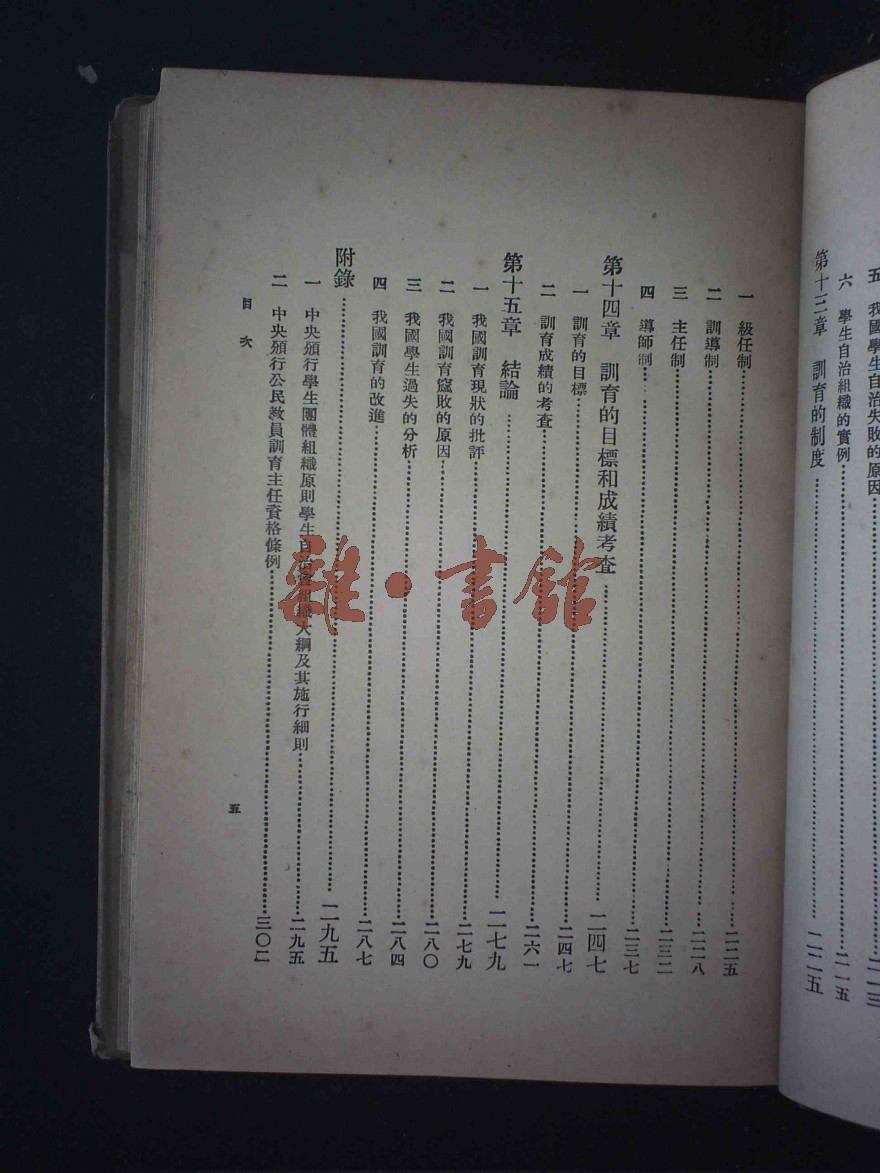 五 我國學生自治失敗的原因……二一三
六 學生自治組織的實例……二一五
第十三章 訓育的制度……二二五
一 級任制……二二五
二 訓導制……二二八
三 主任制……二三二
四 導師制……二三七
第十四章 訓育的目標和成績考查……二四七
一 訓育的目標……二四七
二 訓育成績的考查……二六一
第十五章 結論……二七九
一 我國訓育現狀的批評……二七九
二 我國訓育窳敗的原因……二八〇
三 我國學生過失的分析……二八四
四 我國訓育的改進……二八七
附錄……二九五
一 中央頒行學生團體組織原則學生自治會組織大綱及其施行細則……二九五
二 中央頒行公民教員訓育主任資格條例……三〇二
目次
五
雜·書館